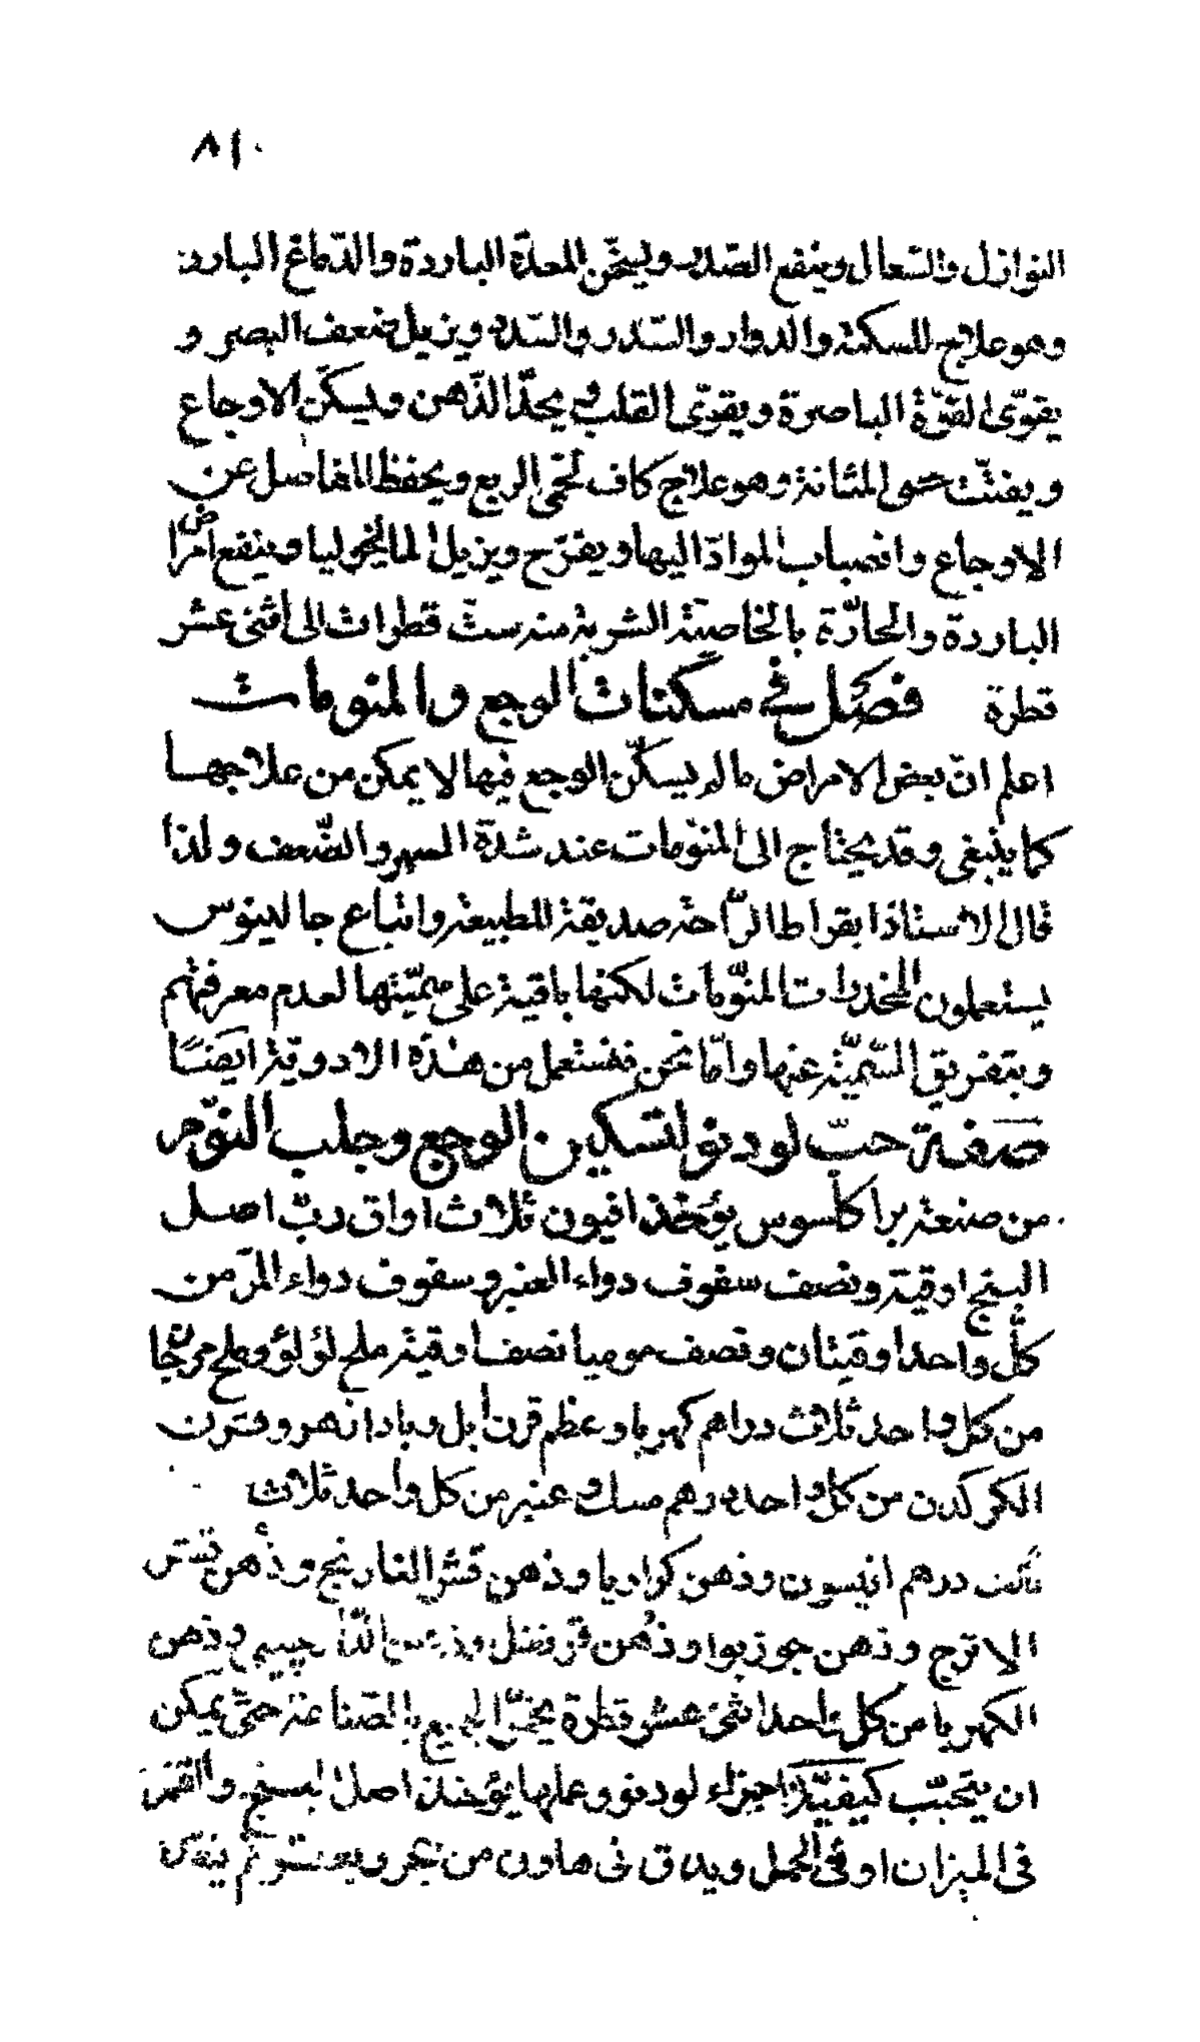 ٨١٠
النوازل والسّعال وينفع الصّدر ويسخّن المعدة الباردة والدّماغ البارد
وهو علاج للسكتة والدوار والسّدر والسّدد ويزيل ضعف البصر و
يقوّى القوّة الباصرة ويقوّى القلب ويحدّ الذّهن ويسكّن الاوجاع
ويفتّت حصى المثانة وهو علاج كاف لحمّى الربع ويحفظ المفاصل عن
الاوجاع وانصباب الموادّ اليها ويفرّح ويزيل المالنخوليا وينفع امراض
الباردة والحارّة بالخاصيّة الشربة منه ستّ قطرات الى اثنى عشر
قطرة فصل فى مسكّنات الوجع والمنومات
اعلم انّ بعض الامراض ما لم يسكّن الوجع فيها لا يمكن من علاجها
كما ينبغى وقد يحتاج الى المنوّمات عند شدّة السهر والضّعف ولذا
قال الاستاذ ابقراط الرّاحة صديقة للطبيعة واتباع جالينوس
يستعملون المخدرات المنوّمات لكنها باقية على سمّيّتها لعدم معرفتهم
وبتفريق السّمّيّة عنها وامّا نحن فنستعمل من هذه الادوية ايضًا
صفة حبّ لودنو لتسكين الوجع وجلب النوّم
من صنعة براكلسوس يؤخذ افيون ثلاث اواق ربّ اصل
البنج اوقية ونصف سفوف دواء العنبر وسفوف دواء المرّ من
كلّ واحد اوقيتان ونصف موميا نصف اوقية ملح لؤلؤ وملح مرجان
من كل واحد ثلاث دراهم كهربا وعظم قرن ايل وبادزهر وقرن
الكركدن من كل واحد درهم مسك وعنبر من كل واحد ثلاث
درهم انيسون وذهن كراويا وذهن قشر النارنج وذهن قشر
الاترج وذهن جوزبوا وذهن قرنفل وذهن وذهن
الكهربا من كل واحد اثنى عشر قطرة يخمّر الجميع بالصّناعة حتّى يمكن
ان يتحبّب كيفيّة اجزاء لودنو وعملها يؤخذ اصل البنج والقمر
فى الميزان او فى الحمل ويدق فى هاون من حجر ويعصر ثم